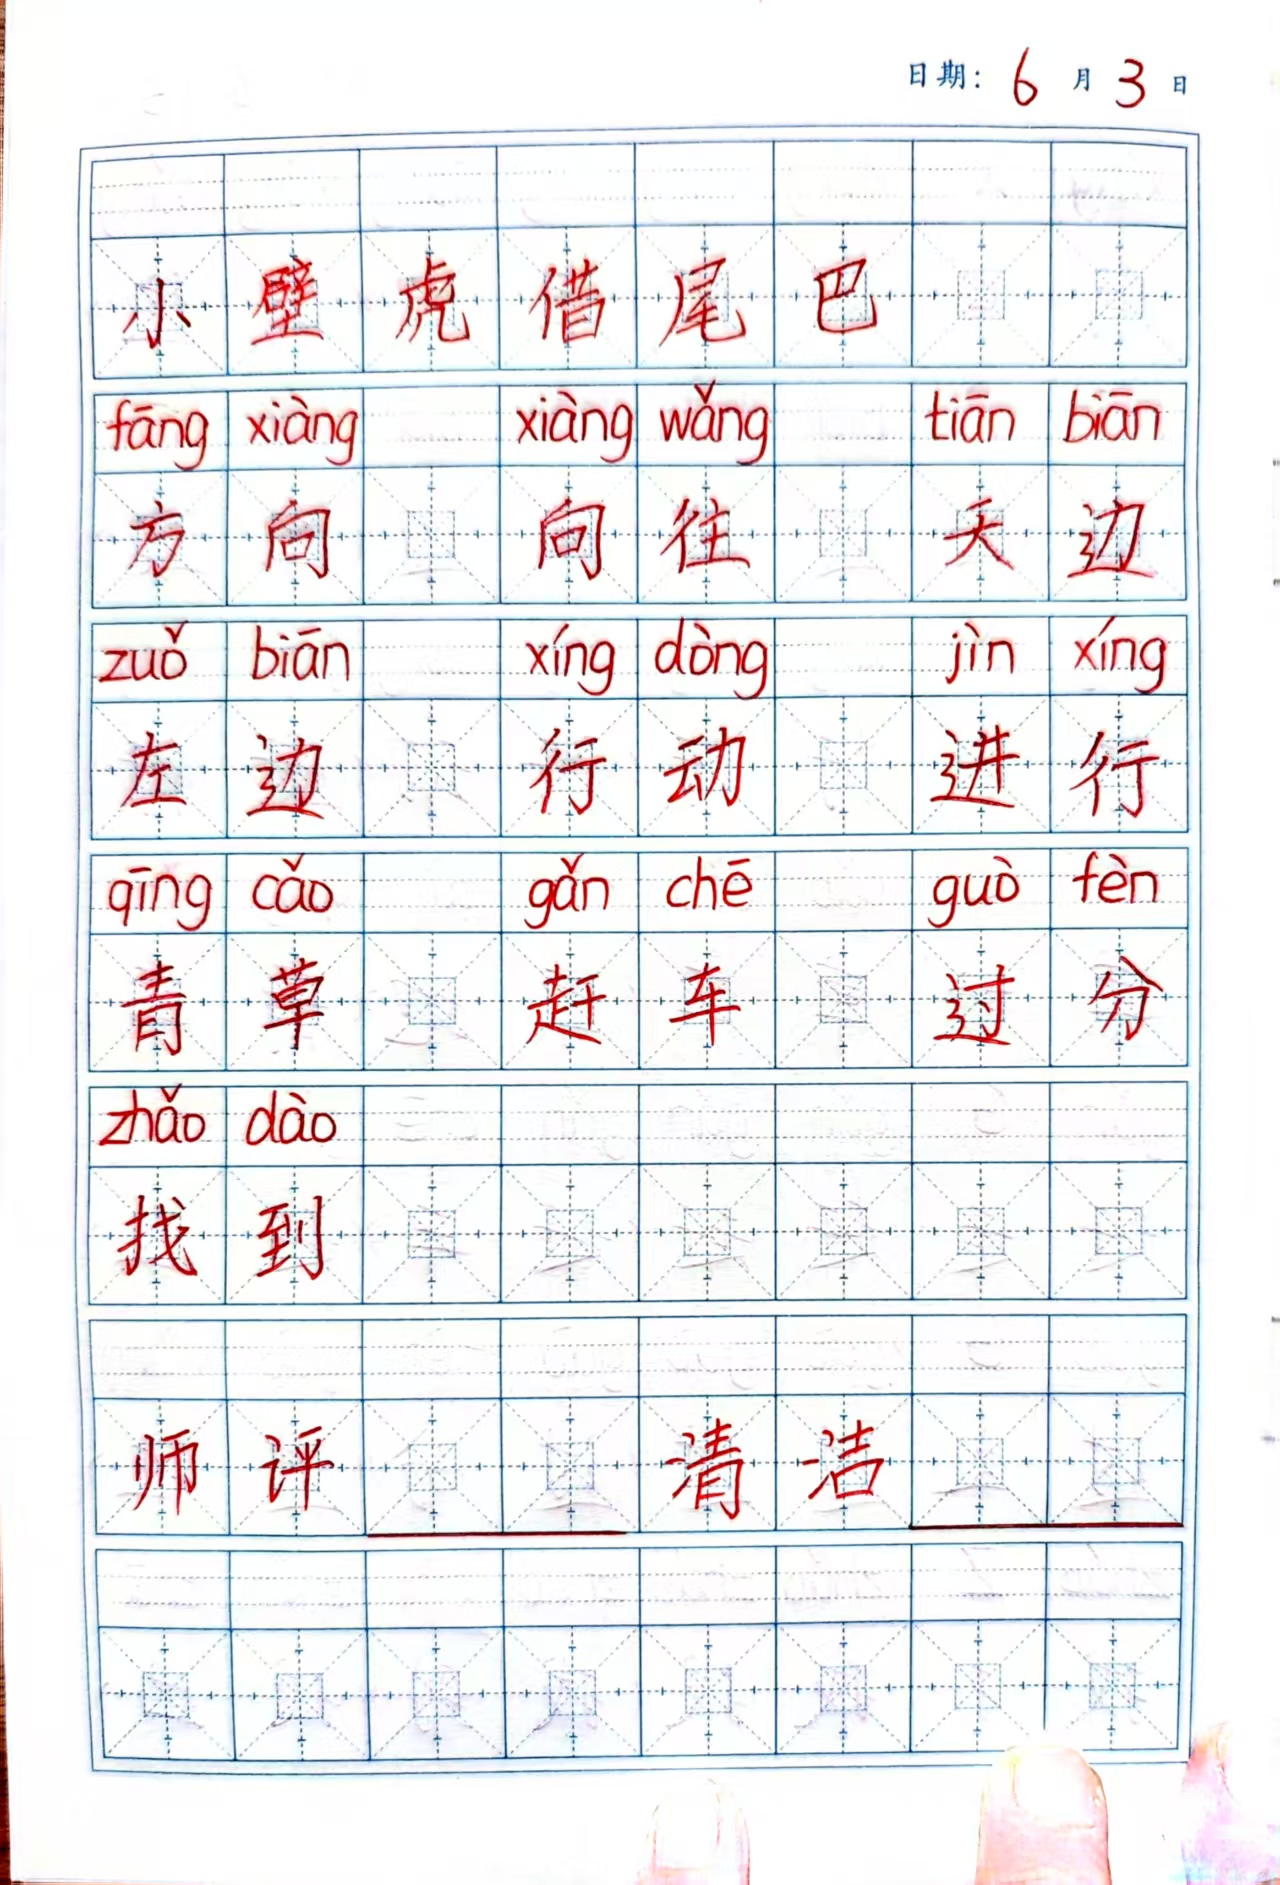 日期: 6 月 3 日
小壁虎借尾巴
fāng xiàng xiàng wǎng tiān biān
方向 向往 天边
zuǒ biān xíng dòng jìn xíng
左边 行动 进行
qīng cǎo gǎn chē guò fèn
青草 赶车 过分
zhǎo dào
找到
师评 清洁